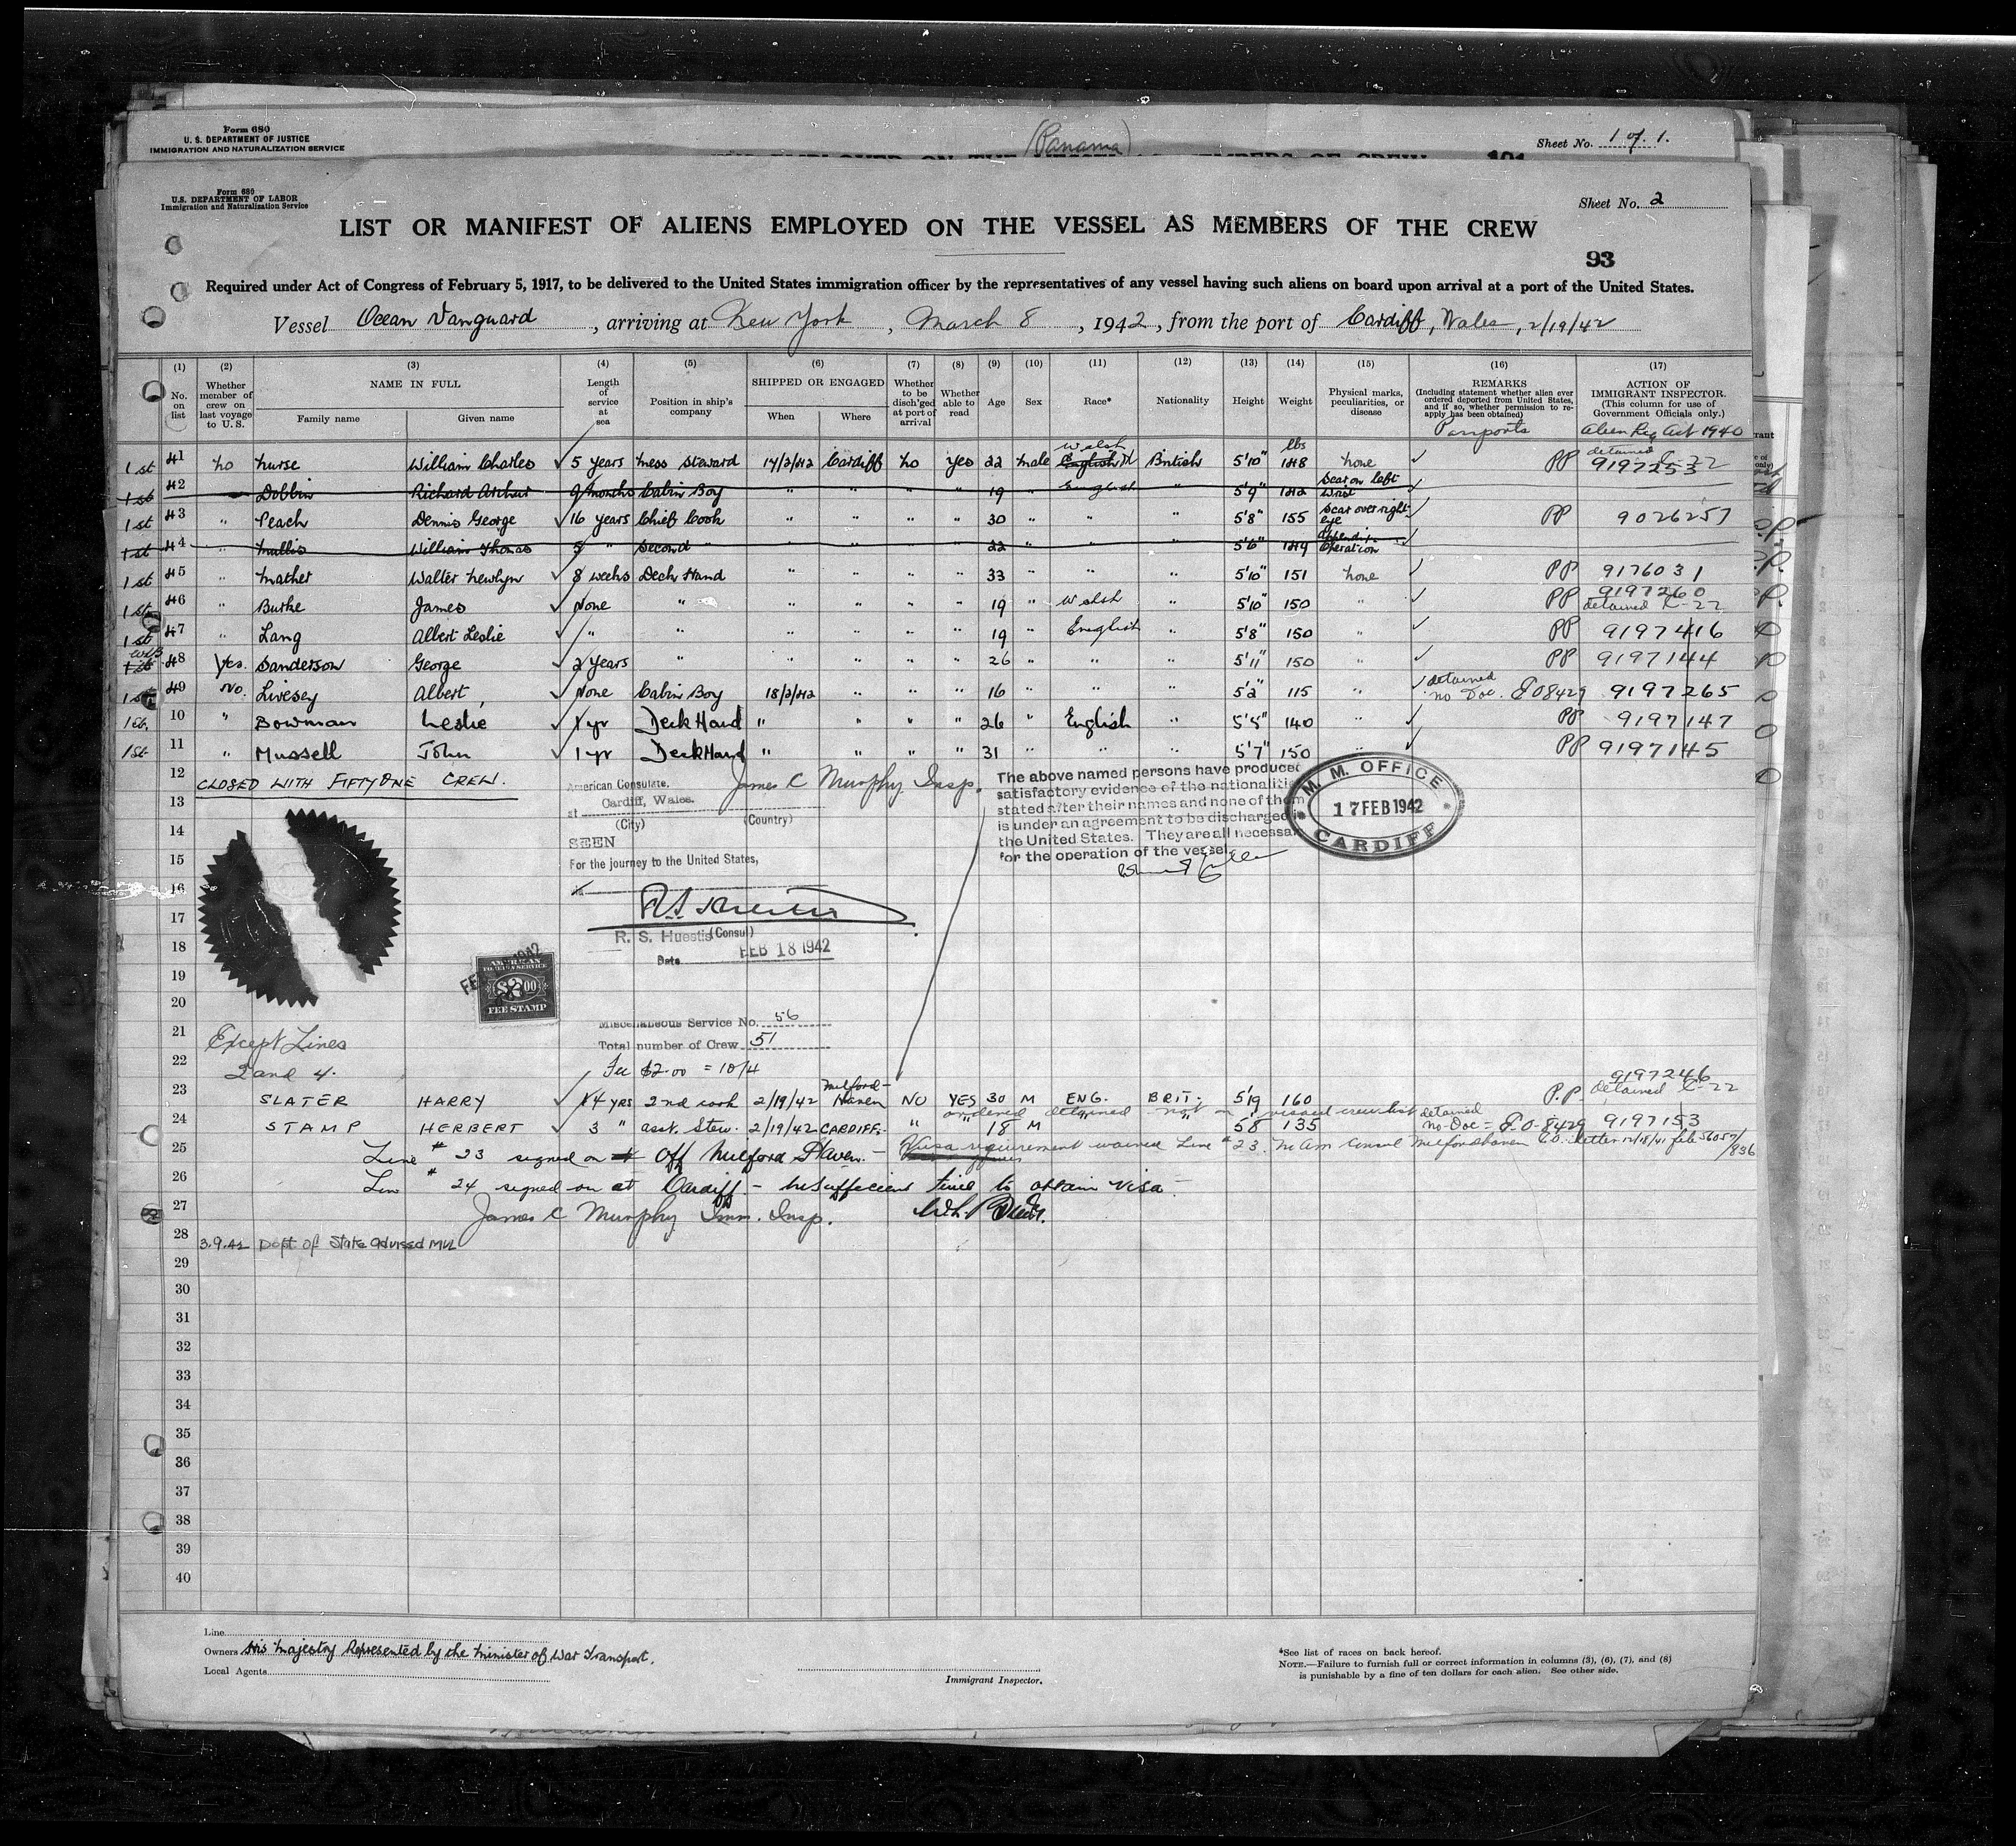 Form 680
U. S. DEPARTMENT OF JUSTICE
IMMIGRATION AND NATURALIZATION SERVICE
(Panama)
Sheet No. 1 of 1.
Form 680
U.S. DEPARTMENT OF LABOR
Immigration and Naturalization Service
Sheet No. 2
LIST OR MANIFEST OF ALIENS EMPLOYED ON THE VESSEL AS MEMBERS OF THE CREW
93
Required under Act of Congress of February 5, 1917, to be delivered to the United States immigration officer by the representatives of any vessel having such aliens on board upon arrival at a port of the United States.
Vessel Ocean Vanguard, arriving at New York, March 8, 1942, from the port of Cardiff, Wales, 2/19/42
(1) (2) (3) (4) (5) (6) (7) (8) (9) (10) (11) (12) (13) (14) (15) (16) (17)
No. on list
Whether member of crew on last voyage to U. S.
NAME IN FULL
Family name
Given name
Length of service at sea
Position in ship's company
SHIPPED OR ENGAGED
When
Where
Whether to be disch'ged at port of arrival
Whether able to read
Age
Sex
Race*
Nationality
Height
Weight
Physical marks, peculiarities, or disease
REMARKS
(Including statement whether alien ever ordered deported from United States, and if so, whether permission to reapply has been obtained)
Passports
ACTION OF IMMIGRANT INSPECTOR.
(This column for use of Government Officials only.)
Alien Reg Act 1940
1st 41 no Nurse William Charles 5 years Mess Steward 17/2/42 Cardiff no yes 22 male English Welsh British 5'10" lbs 148 none PP detained C-22 9197253
1st 42 Dobbin Richard Arthur 9 months Cabin Boy " " " " 19 " English " 5'9" 142 Scar on left wrist
1st 43 " Peach Dennis George 16 years Chief Cook " " " " 30 " " " 5'8" 155 Scar over right eye PP 9026257
1st 44 " Mullis William Thomas 5 " Second " " " " " 22 " " " 5'6" 149 Operation
1st 45 " Mather Walter Newlyn 8 weeks Deck Hand " " " " 33 " " " 5'10" 151 none PP 9176031
1st 46 " Burke James None " " " " " 19 " Welsh " 5'10" 150 " PP 9197260 detained C-22
1st 47 " Lang Albert Leslie " " " " " " 19 " English " 5'8" 150 " PP 9197416
1st 48 Yes. Sanderson George 2 years " " " " " 26 " " " 5'11" 150 " PP 9197144
1st 49 No. Livesey Albert, None Cabin Boy 18/2/42 " " " 16 " " " 5'2" 115 " detained no Doc. E08429 9197265
1st. 10 " Bowman Leslie 1 yr Deck Hand " " " " 26 " English " 5'5" 140 " PP 9197147
1st 11 " Mussell John 1 yr Deck Hand " " " " 31 " " " 5'7" 150 " PP 9197145
12 CLOSED WITH FIFTYONE CREW.
James C Murphy Insp.
American Consulate.
at Cardiff, Wales.
(City) (Country)
SEEN
For the journey to the United States,
R. S. Huestis (Consul)
Date FEB 18 1942
The above named persons have produced
satisfactory evidence of the nationalities
stated after their names and none of them
is under an agreement to be discharged in
the United States. They are all necessary
for the operation of the vessel.
M. M. OFFICE
17 FEB 1942
CARDIFF
13
14
15
16
17
18
19
20
AMERICAN
FOREIGN SERVICE
$2.00
FEE STAMP
Miscellaneous Service No. 56
Total number of Crew 51
Fee $2.00 = 10/4
21 Except Lines
22 2 and 4.
23 SLATER HARRY 14 YRS 2nd cook 2/19/42 Milford-Haven NO YES 30 M ENG. BRIT. 5'9 160 P.P 9197246 Detained C-22
ordered detained not on visaed crew list
24 STAMP HERBERT 3 " asst. Stew. 2/19/42 CARDIFF. " " 18 M " 5'8 135 detained no-Doc = E.O-8429 9197153
25 Line # 23 signed on off Milford Haven. - Visa requirement waived Line # 23. Am Consul Milfordhaven C.O. letter 12/18/41 file 56057/836
26 Line # 24 signed on at Cardiff - Insufficient time to obtain visa
27 James C Murphy Imm. Insp.
28 3.9.42 Dept of State advised MW
29
30
31
32
33
34
35
36
37
38
39
40
Line
Owners His Majesty Represented by the Minister of War Transport.
Local Agents
Immigrant Inspector.
*See list of races on back hereof.
NOTE.—Failure to furnish full or correct information in columns (3), (6), (7), and (8)
is punishable by a fine of ten dollars for each alien. See other side.